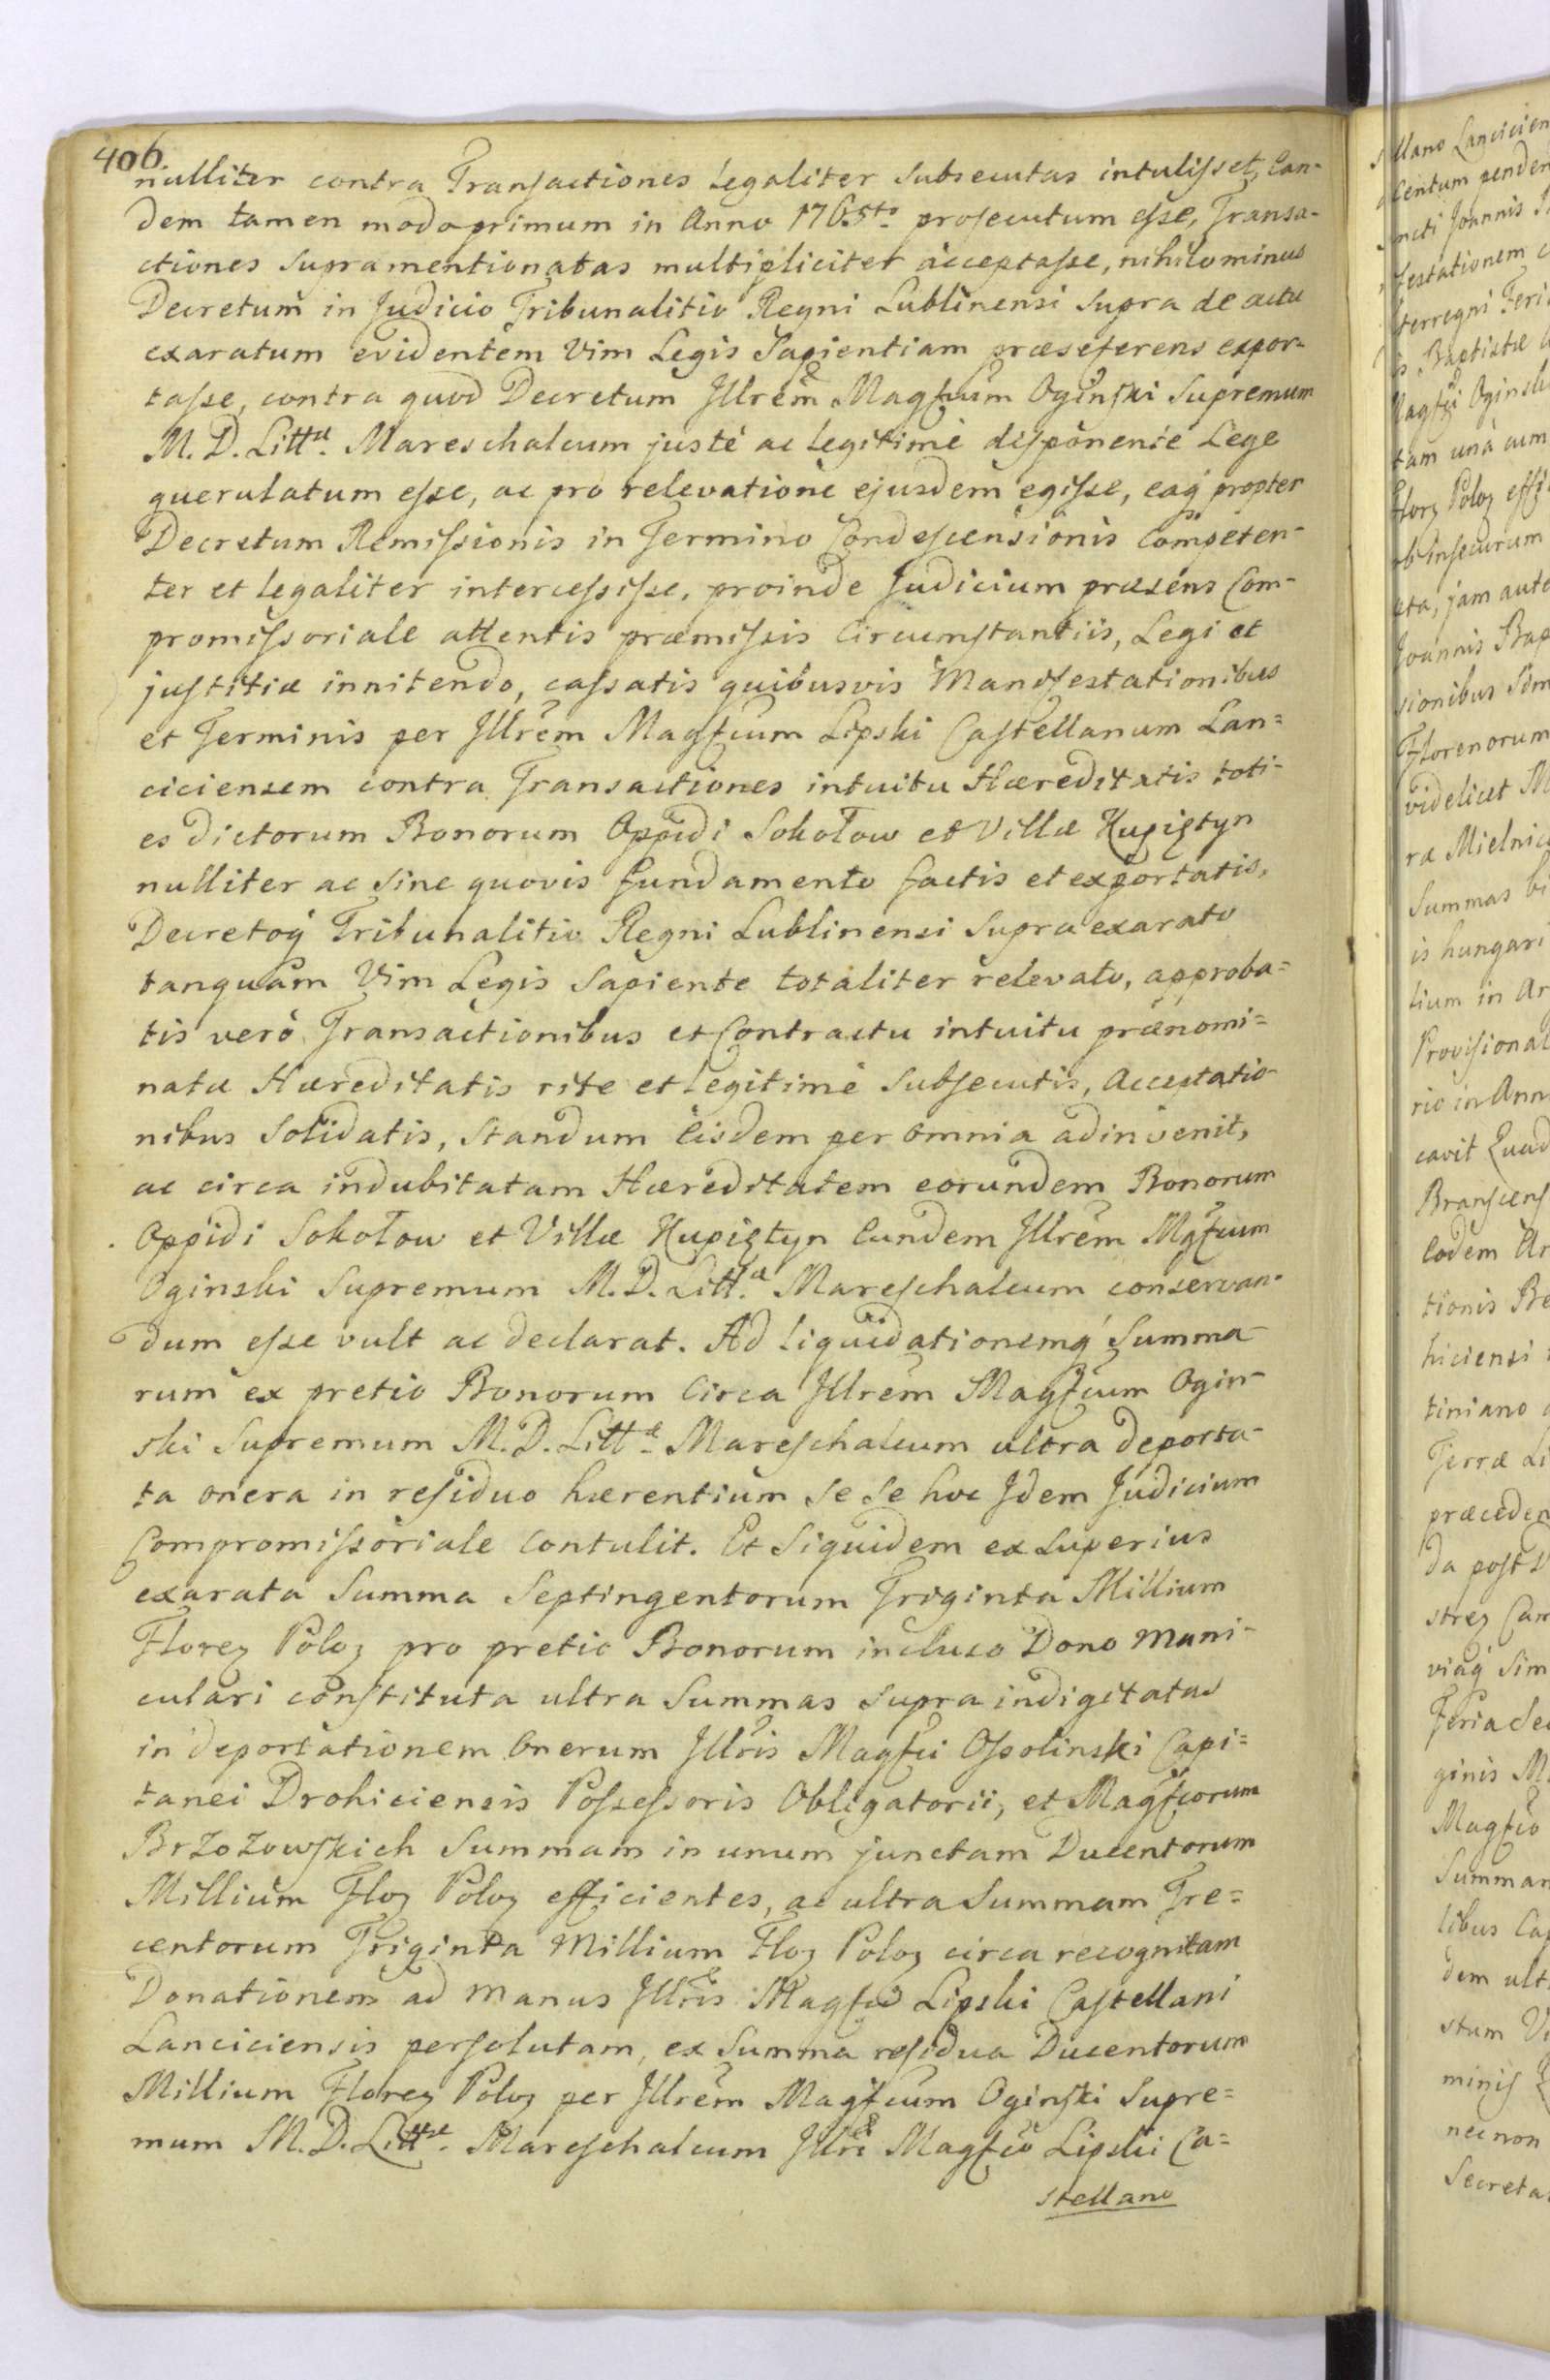 406.
nulliter contra Transactiones legaliter subsecutas intulisset, Ean-
dem tamen modo primum in Anno 1765to prosecutum esse, Transa-
ctiones supramentionatas multipliciter acceptasse, nihilominus
Decretum in Judicio Tribunalitio Regni Lublinensi supra de actu
exaratum evidentem Vim Legis Sapientiam præseferens expor-
tasse, contra quod Decretum Jllrem Magfcum Oginski Supremum
M. D. Littæ. Mareschalcum juste ac legitime disponente Lege
querulatum esse, ac pro relevatione ejusdem egisse, eaq propter
Decretum Remissionis in Termino Condescensionis Competen-
ter et legaliter intercessisse, proinde Judicium præsens Com-
promissoriale attentis præmissis Circumstantiis, Legi et
justitiæ innitendo, cassatis quibusvis Manifestationibus
et Terminis per Jllrem Magfcum Lipski Castellanum Lan=
ciciensem contra Transactiones intuitu Hæreditatis toti-
es dictorum Bonorum Oppidi Sokołow et Villæ Kupiętyn
nulliter ac sine quovis fundamento factis et exportatis,
Decretoq Tribunalitio Regni Lublinensi supra exarato
tanquam Vim Legis Sapiente totaliter relevato, approba=
tis verò Transactionibus et Contractu intuitu prænomi=
natæ Hæreditatis rite et legitimè subsecutis, Acceptatio-
nibus Solidatis, standum Eisdem per omnia adinvenit,
ac circa indubitatam Hæreditatem eorundem Bonorum
Oppidi Sokołow et Villæ Kupiętyn Eundem Jllrem Mgfcum
Oginski Supremum M. D. Litt.æ Mareschalcum conservan-
dum esse vult ac declarat. Ad liquidationemq Summa-
rum ex pretio Bonorum Circa Jllrem Magfcum Ogin-
ski Supremum M. D. Littæ. Mareschalcum ultra deporta-
ta onera in residuo hærentium se se hoc Jdem Judicium
Compromissoriale Contulit. Et Siquidem ex superius
exarata Summa Septingentorum Triginta Millium
Florez Poloz pro pretio Bonorum incluso Dono Mani-
culari constituta ultra Summas supra indigitatas
in deportationem Onerum Jllris Magfci Ossolinski Capi=
tanei Drohiciensis Possessoris Obligatorii, et Magfcorum
Brzozowskich Summam in unum junctam Ducentorum
Millium Floz Poloz efficientes, ac ultra Summam Tre=
centorum Triginta Millium Floz Poloz circa recognitam
Donationem ad manus Jllris Magfci Lipski Castellani
Lanciciensis persolutam, ex Summa residua Ducentorum
Millium Florez Poloz per Jllrem Magfcum Oginski Supre=
mum M. D. Littæ. Mareschalcum Jllri Magfco Lipski Ca=
stellano